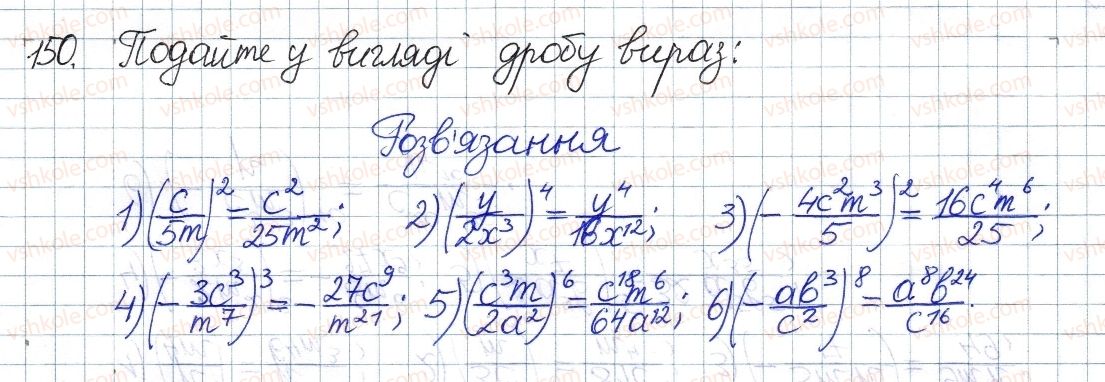 150. Подайте у вигляді дробу вираз:
Розв'язання
1) (c/5m)² = c²/25m²; 2) (y/2x³)⁴ = y⁴/16x¹²; 3) (-4c²m³/5)² = 16c⁴m⁶/25;
4) (-3c³/m⁷)³ = -27c⁹/m²¹; 5) (c³m/2a²)⁶ = c¹⁸m⁶/64a¹²; 6) (-ab³/c²)⁸ = a⁸b²⁴/c¹⁶.